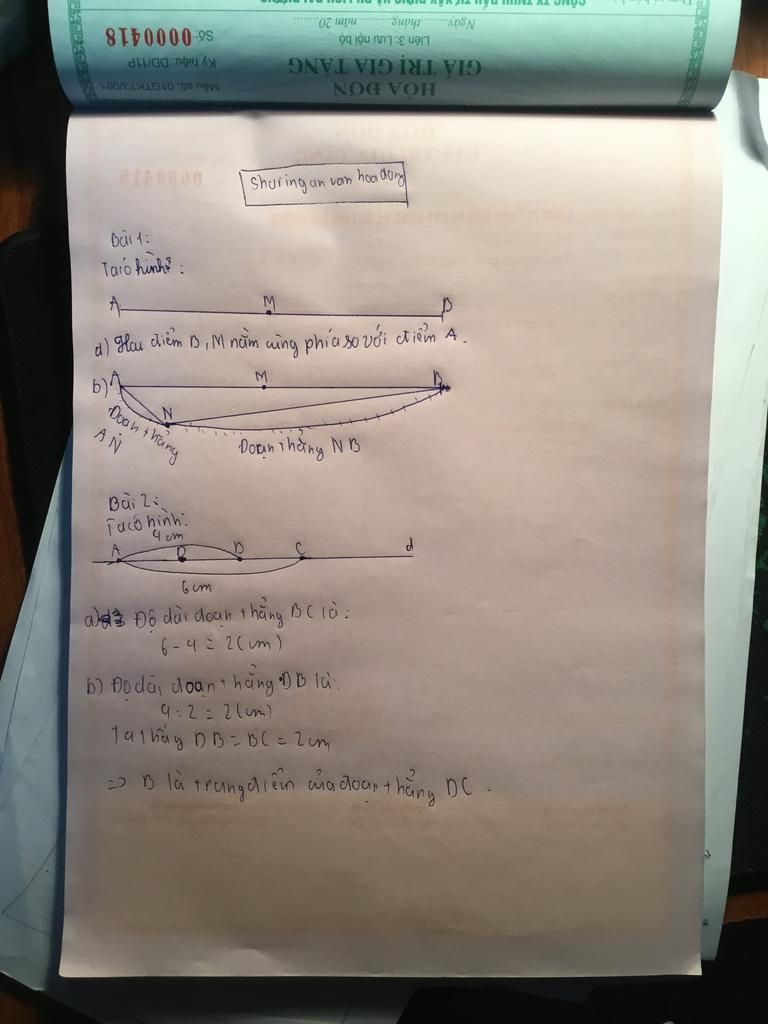 CÔNG TY TNHH ĐẦU TƯ XÂY DỰNG
Ngày.........tháng.........năm 20
Liên 3: Lưu nội bộ
Số: 0000418
GIÁ TRỊ GIA TĂNG
Ký hiệu: DD/11P
HÓA ĐƠN
Mẫu số: 01GTKT3/001
Sharingan van hoa dong
Bài 1:
Ta có hình:
A M B
a) Hai điểm B, M nằm cùng phía so với điểm A.
b) A M B
N
Đoạn thẳng
AN
Đoạn thẳng NB
Bài 2:
Ta có hình:
4 cm
A D B C d
6cm
a) Độ dài đoạn thẳng BC là:
6 - 4 = 2 (cm)
b) Độ dài đoạn thẳng DB là:
4 : 2 = 2 (cm)
Ta thấy DB = BC = 2cm
=> B là trung điểm của đoạn thẳng DC.